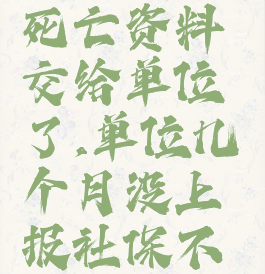 死亡资料
交给单位
了,单位几
个月没上
报社保不